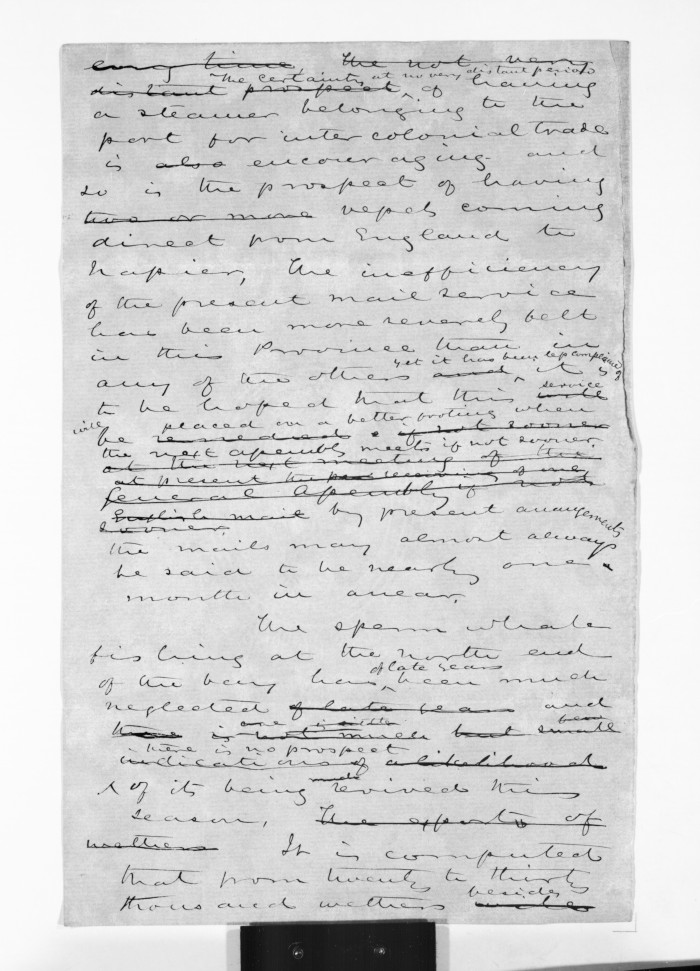 every time, the not very
The certainty at no very distant period
distant prospect of having
a steamer belonging to the
port for inter colonial trade
is also encouraging and
so is the prospect of having
two or more vessels coming
direct from England to
Napier, The inefficiency
of the present mail service
has been more severely felt
in this Province than in
yet it has been less complained of
any of the others and it is
service
to be hoped that this will
will placed on a better footing when
be remedied if not sooner
the next assembly meets if not sooner.
at the next meeting of the
at present the receiving of one
General Assembly if not
English mail by present arrangements
sooner.
the mails may almost always
be said to be nearly one
month in arrear.
The sperm whale
fishing at the north end
of late years
of the bay has been much
neglected of late years and
there is not much but small
there is no prospect
indications of a likelihood
much
of its being revived this
season, The exports of
wethers It is computed
that from twenty to thirty
besides
thousand wethers